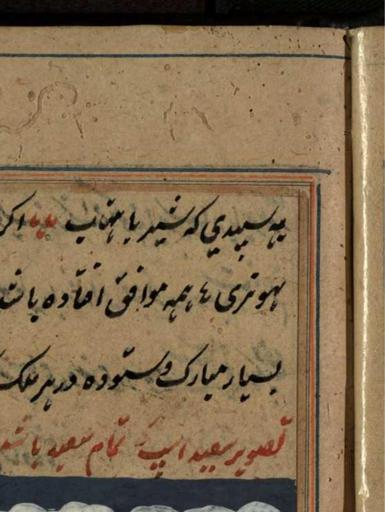 چه سپیدی که شیر یا مهتاب باید اکر
بهونری ء همه موافق افتاده باشد
بسیار مبارک و ستوده در هر ملک
تصویر سعید اسپ تمام سعید باشد